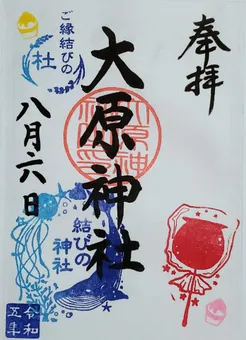 奉拝
大原神社
ご縁結びの
社
結びの
神社
八月六日
令和
五年